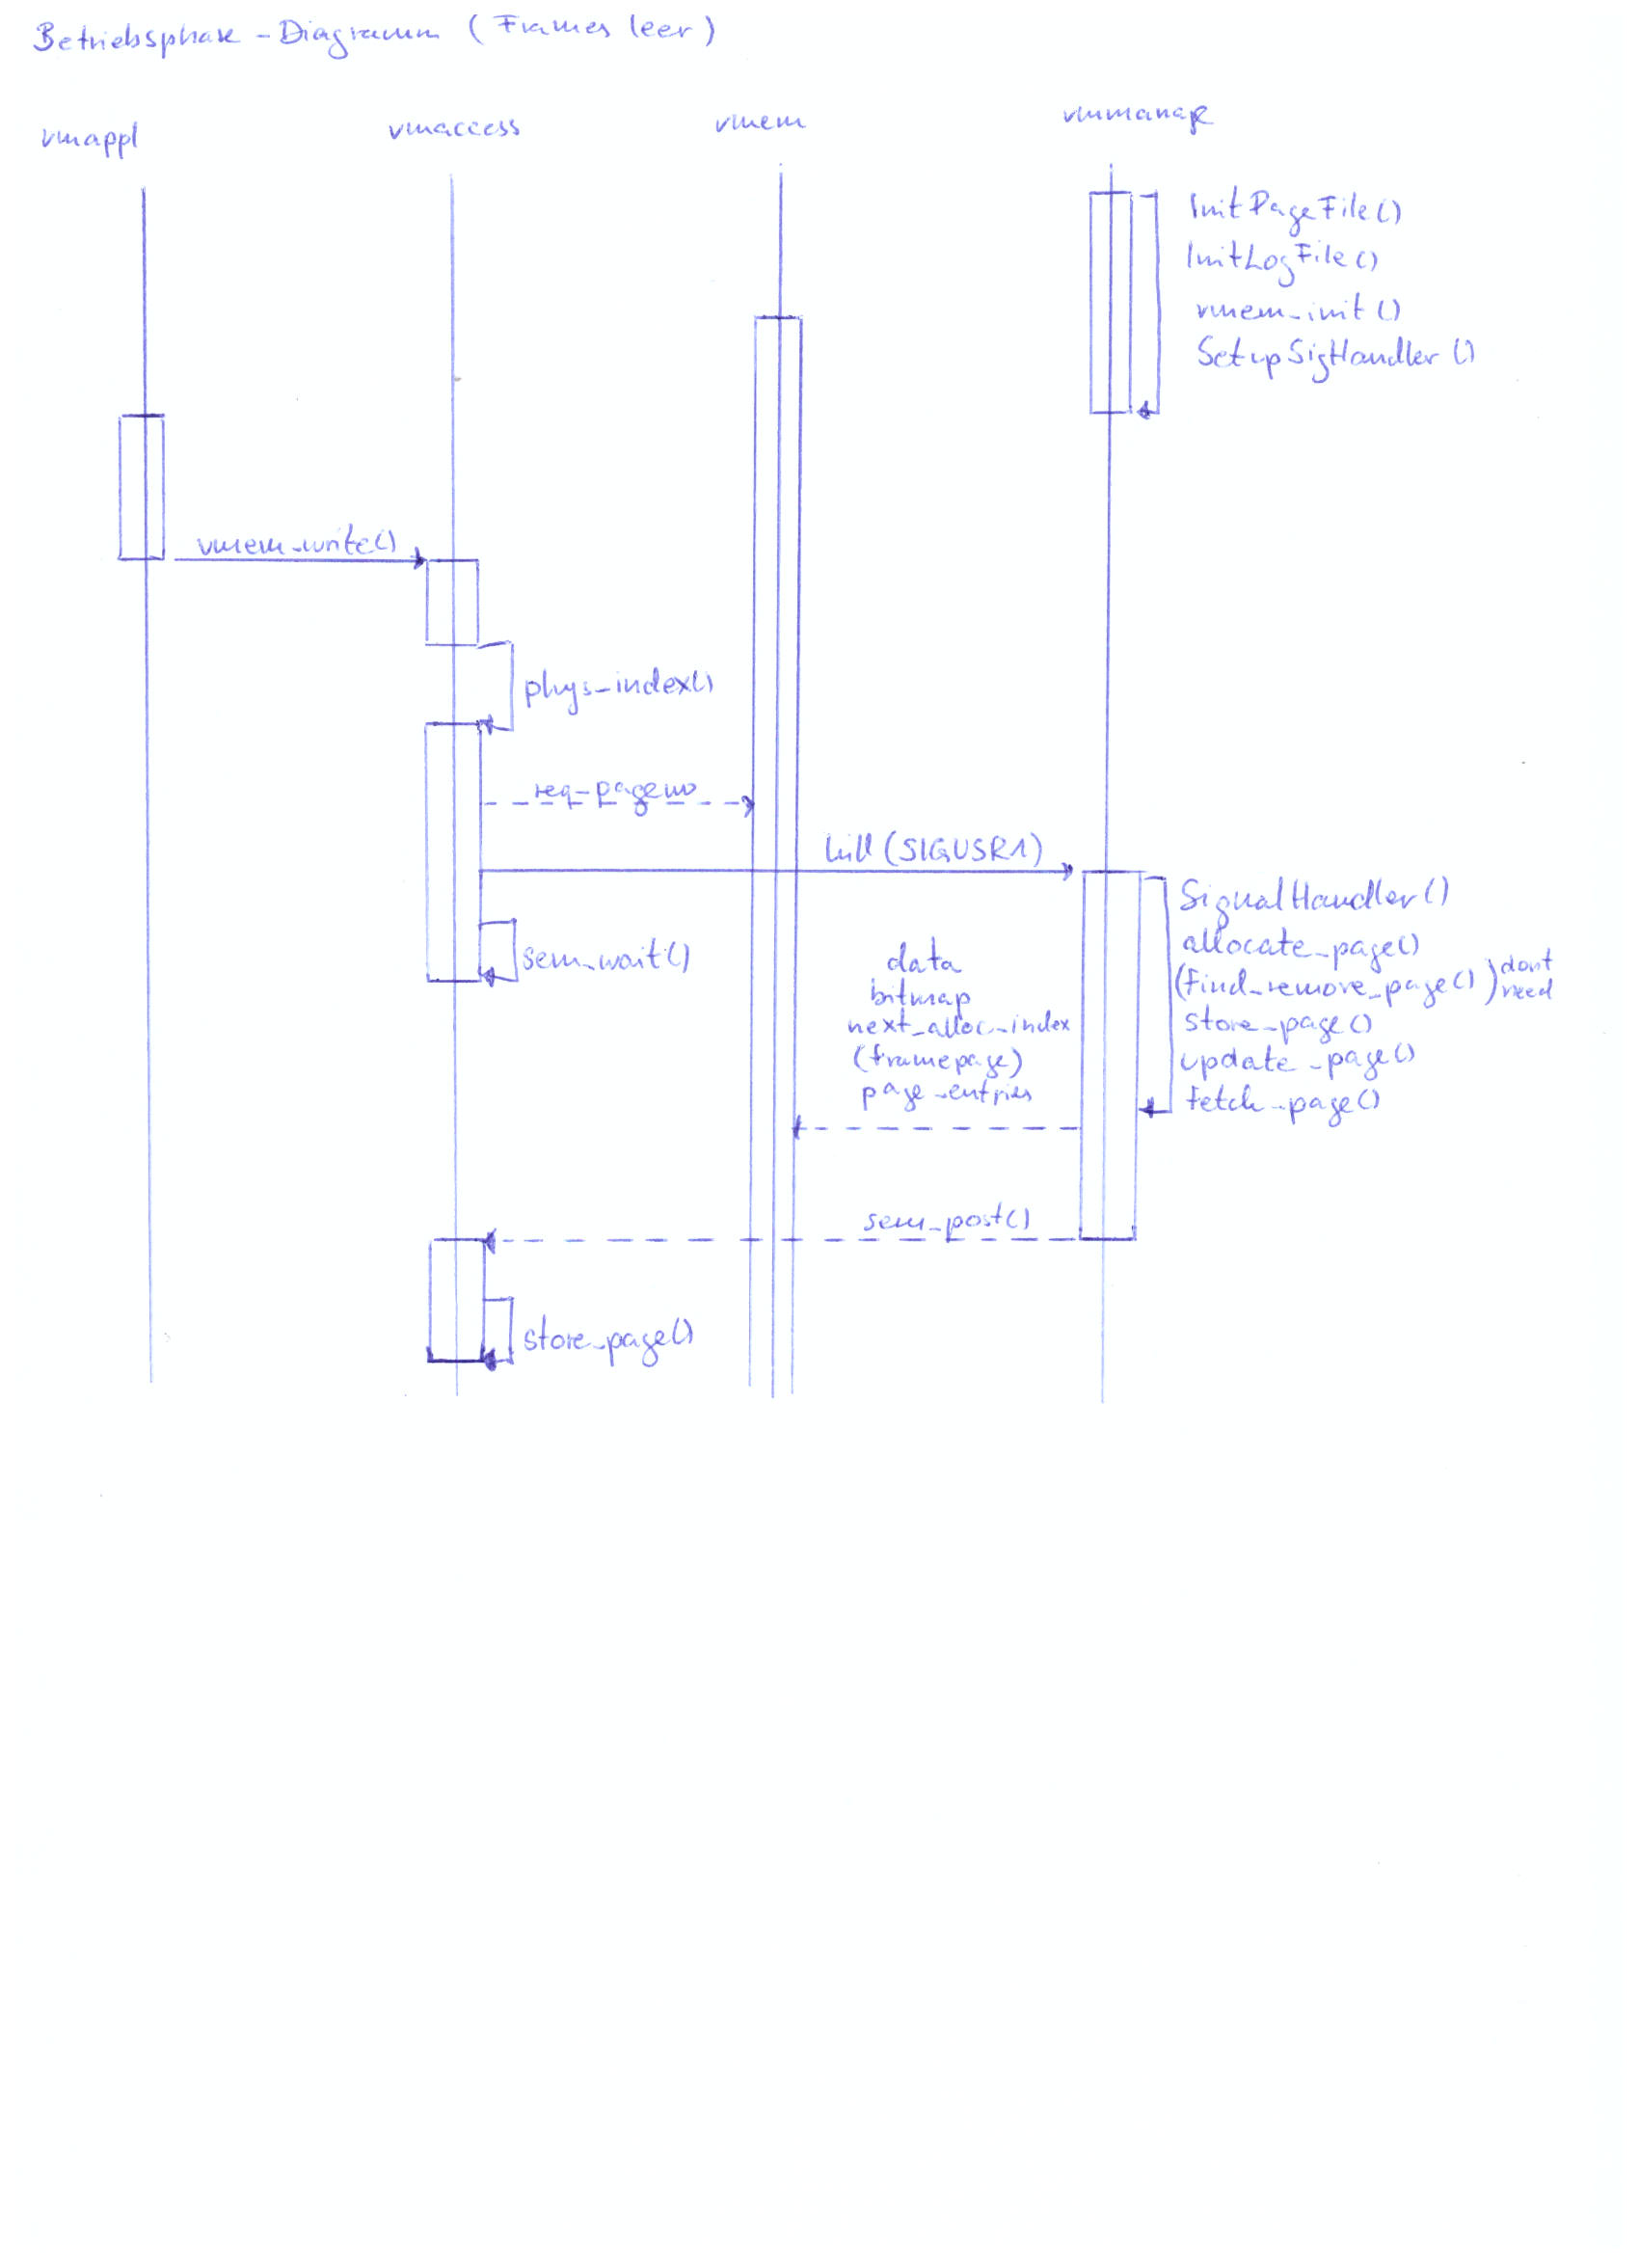 Betriebsphase - Diagramm (Frames leer)
vmappl
vmaccess
vmem
vmmanage
InitPageFile()
InitLogFile()
vmem_init()
SetupSigHandler()
vmem_write()
phys_index()
req_pageno
kill(SIGUSR1)
sem_wait()
SignalHandler()
allocate_page()
(find_remove_page()) dont need
store_page()
update_page()
fetch_page()
data
bitmap
next_alloc_index
(framepage)
page_entries
sem_post()
store_page()